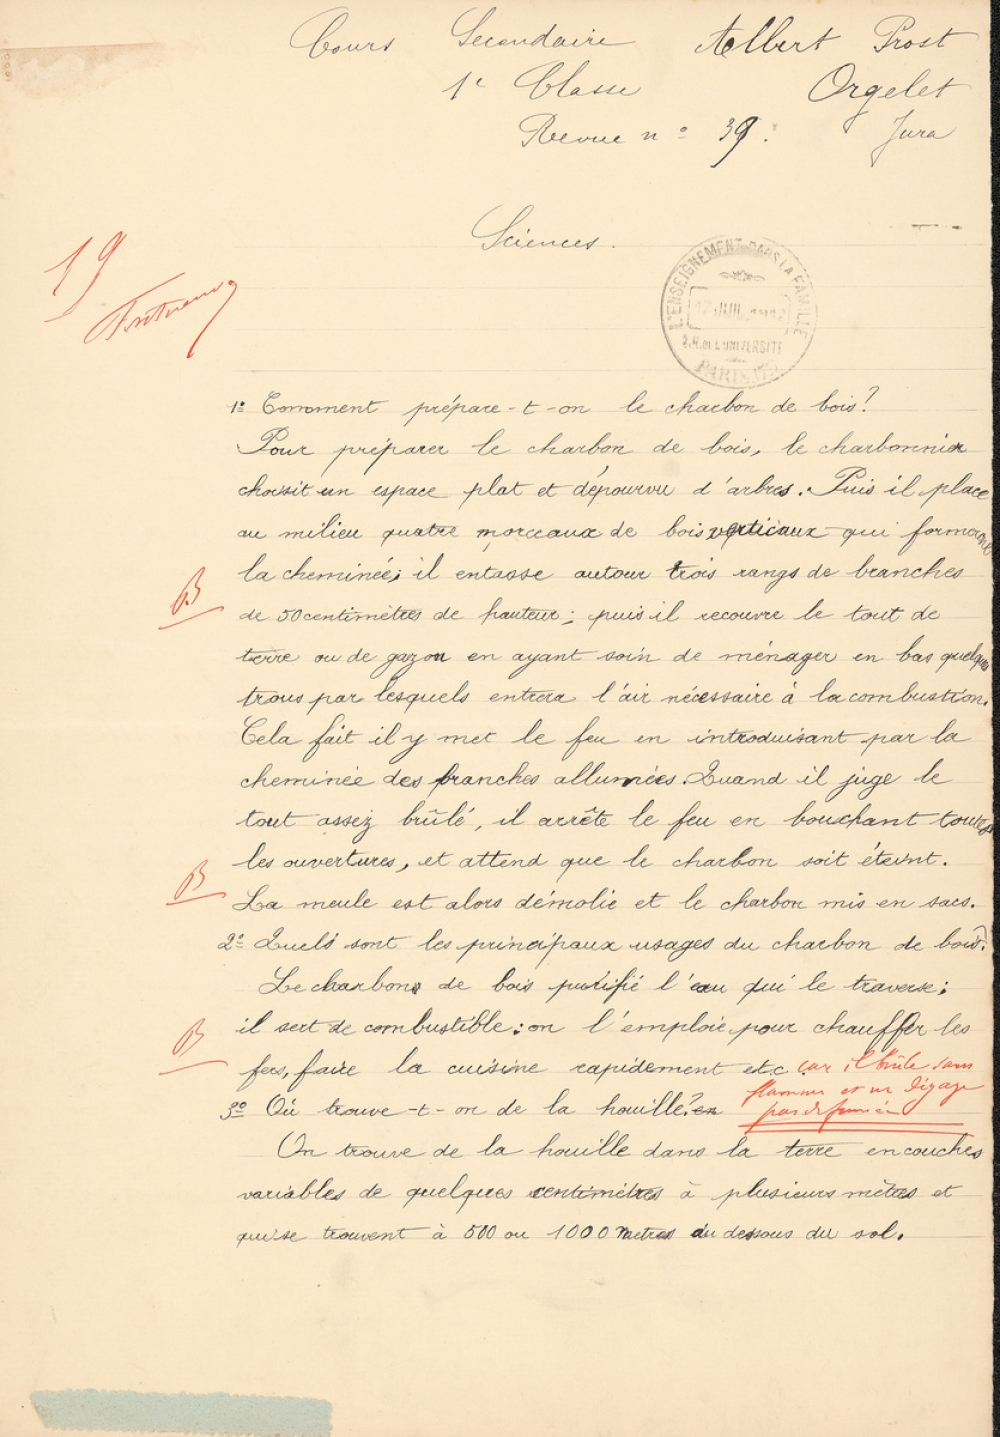 Cours Secondaire Albert Prost
1e Classe Orgelet
Revue n° 39. Jura
Sciences.
19
L'ENSEIGNEMENT DANS LA FAMILLE
JUIL
2, R. DE L'UNIVERSITÉ
PARIS VIIe
1° Comment prépare-t-on le charbon de bois?
Pour préparer le charbon de bois, le charbonnier
choisit un espace plat et dépourvu d'arbres. Puis il place
au milieu quatre morceaux de bois verticaux qui formeront
la cheminée; il entasse autour trois rangs de branches
B
de 50 centimètres de hauteur; puis il recouvre le tout de
terre ou de gazon en ayant soin de ménager en bas quelques
trous par lesquels entrera l'air nécessaire à la combustion.
Cela fait il y met le feu en introduisant par la
cheminée des branches allumées. Quand il juge le
tout assez brûlé, il arrête le feu en bouchant toutes
les ouvertures, et attend que le charbon soit éteint.
B
La meule est alors démolie et le charbon mis en sacs.
2° Quels sont les principaux usages du charbon de bois?
Le charbon de bois purifie l'eau qui le traverse;
il sert de combustible: on l'emploie pour chauffer les
B
fers, faire la cuisine rapidement etc. car il brûle sans
flammes et ne dégage
3° Où trouve-t-on de la houille? en pas de fumée
On trouve de la houille dans la terre en couches
variables de quelques centimètres à plusieurs mètres et
qui se trouvent à 500 ou 1000 mètres au dessous du sol.